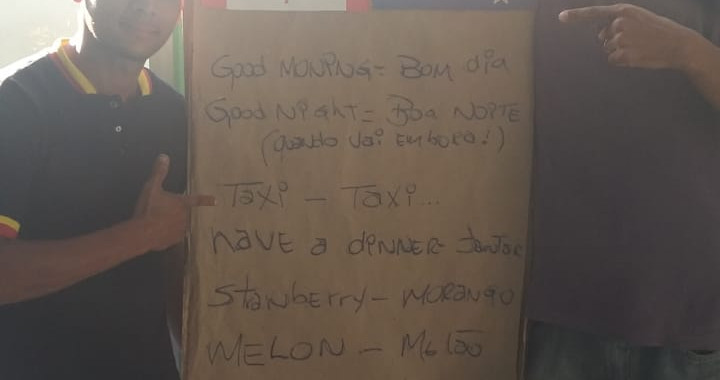 Good MONiNG = BOM dia
Good Night = Boa NOiTE
(quando vai Embora!)
Taxi - Taxi...
have a diNNER - Jantar
Stawberry - MORango
MELON - Melão